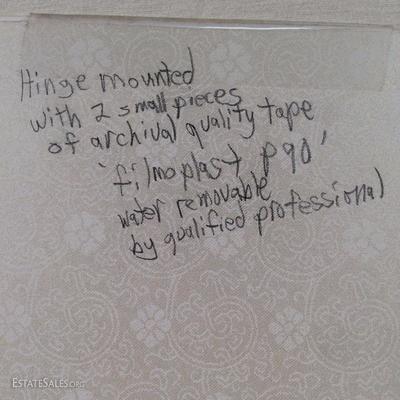 Hinge mounted
with 2 small pieces
of archival quality tape
'filmoplast p90'
water removable
by qualified professional
EstateSales.org